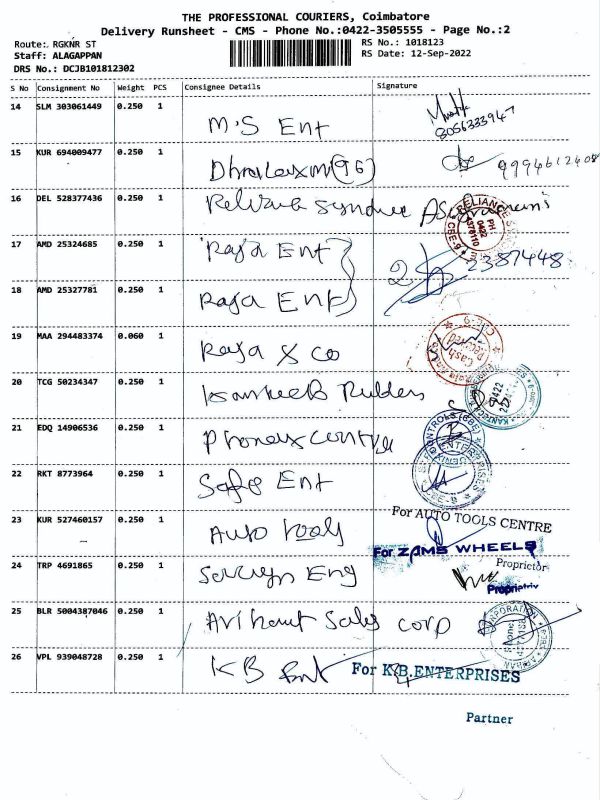 THE PROFESSIONAL COURIERS, Coimbatore
Delivery Runsheet - CMS - Phone No.:0422-3505555 - Page No.:2
Route: RGKNR ST
Staff: ALAGAPPAN
DRS No.: DCJB101812302
RS No.: 1018123
RS Date: 12-Sep-2022
S No Consignment No Weight PCS Consignee Details Signature
14 SLM 303061449 0.250 1 M.S Ent 8056333947
15 KUR 694009477 0.250 1 (96)
16 DEL 528377436 0.250 1 RELIANCE
17 AMD 25324685 0.250 1 Raja Ent 2387448
18 AMD 25327781 0.250 1 Raja Ent
19 MAA 294483374 0.060 1 Raja & Co
20 TCG 50234347 0.250 1
21 EDQ 14906536 0.250 1
22 RKT 8773964 0.250 1 Safe Ent
23 KUR 527460157 0.250 1 Auto Tools For AUTO TOOLS CENTRE
For ZAMS WHEELS
24 TRP 4691865 0.250 1 Eng Proprietor
25 BLR 5004387046 0.250 1 Arihant Sales Corp
26 VPL 939048728 0.250 1 KB Ent For K.B. ENTERPRISES
Partner